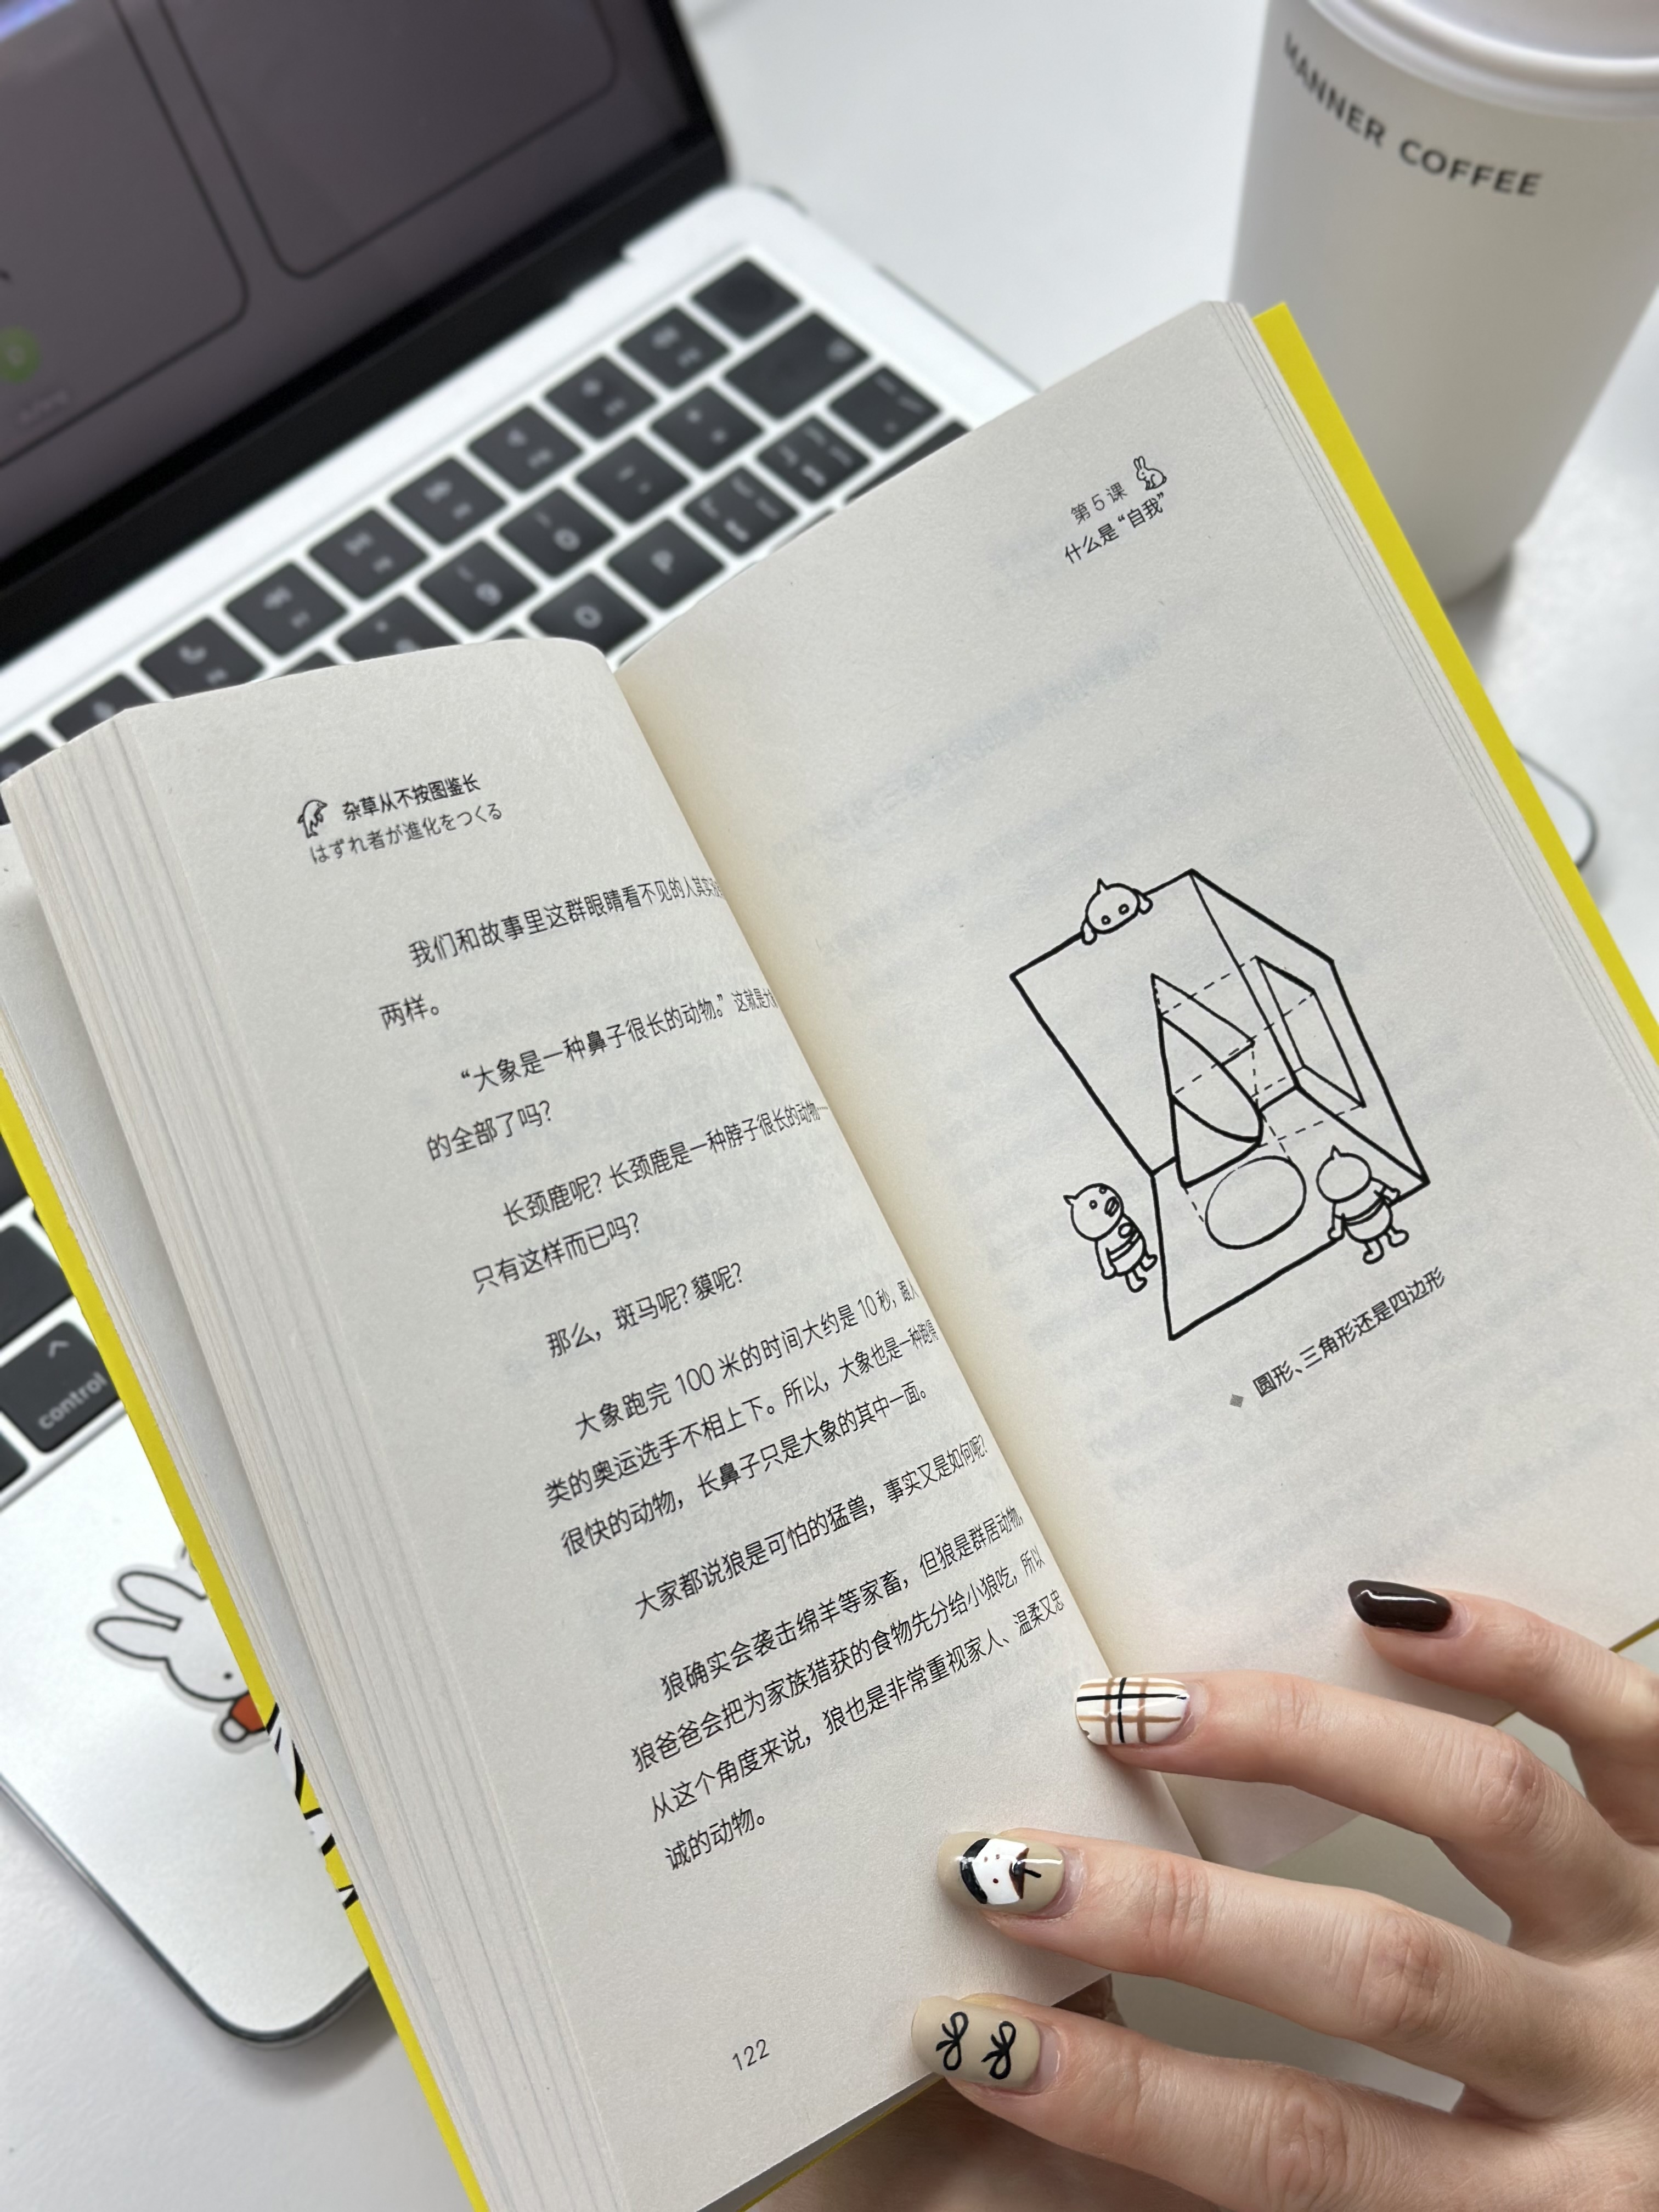 MANNER COFFEE
杂草从不按图鉴长
はずれ者が進化をつくる
我们和故事里这群眼睛看不见的人其实
两样。
“大象是一种鼻子很长的动物。”这就是大
的全部了吗？
长颈鹿呢？长颈鹿是一种脖子很长的动物…
只有这样而已吗？
那么，斑马呢？貘呢？
大象跑完 100 米的时间大约是 10 秒，跟人
类的奥运选手不相上下。所以，大象也是一种跑得
很快的动物，长鼻子只是大象的其中一面。
大家都说狼是可怕的猛兽，事实又是如何呢？
狼确实会袭击绵羊等家畜，但狼是群居动物，
狼爸爸会把为家族猎获的食物先分给小狼吃，所以
从这个角度来说，狼也是非常重视家人、温柔又忠
诚的动物。
122
第 5 课
什么是“自我”
圆形、三角形还是四边形
control